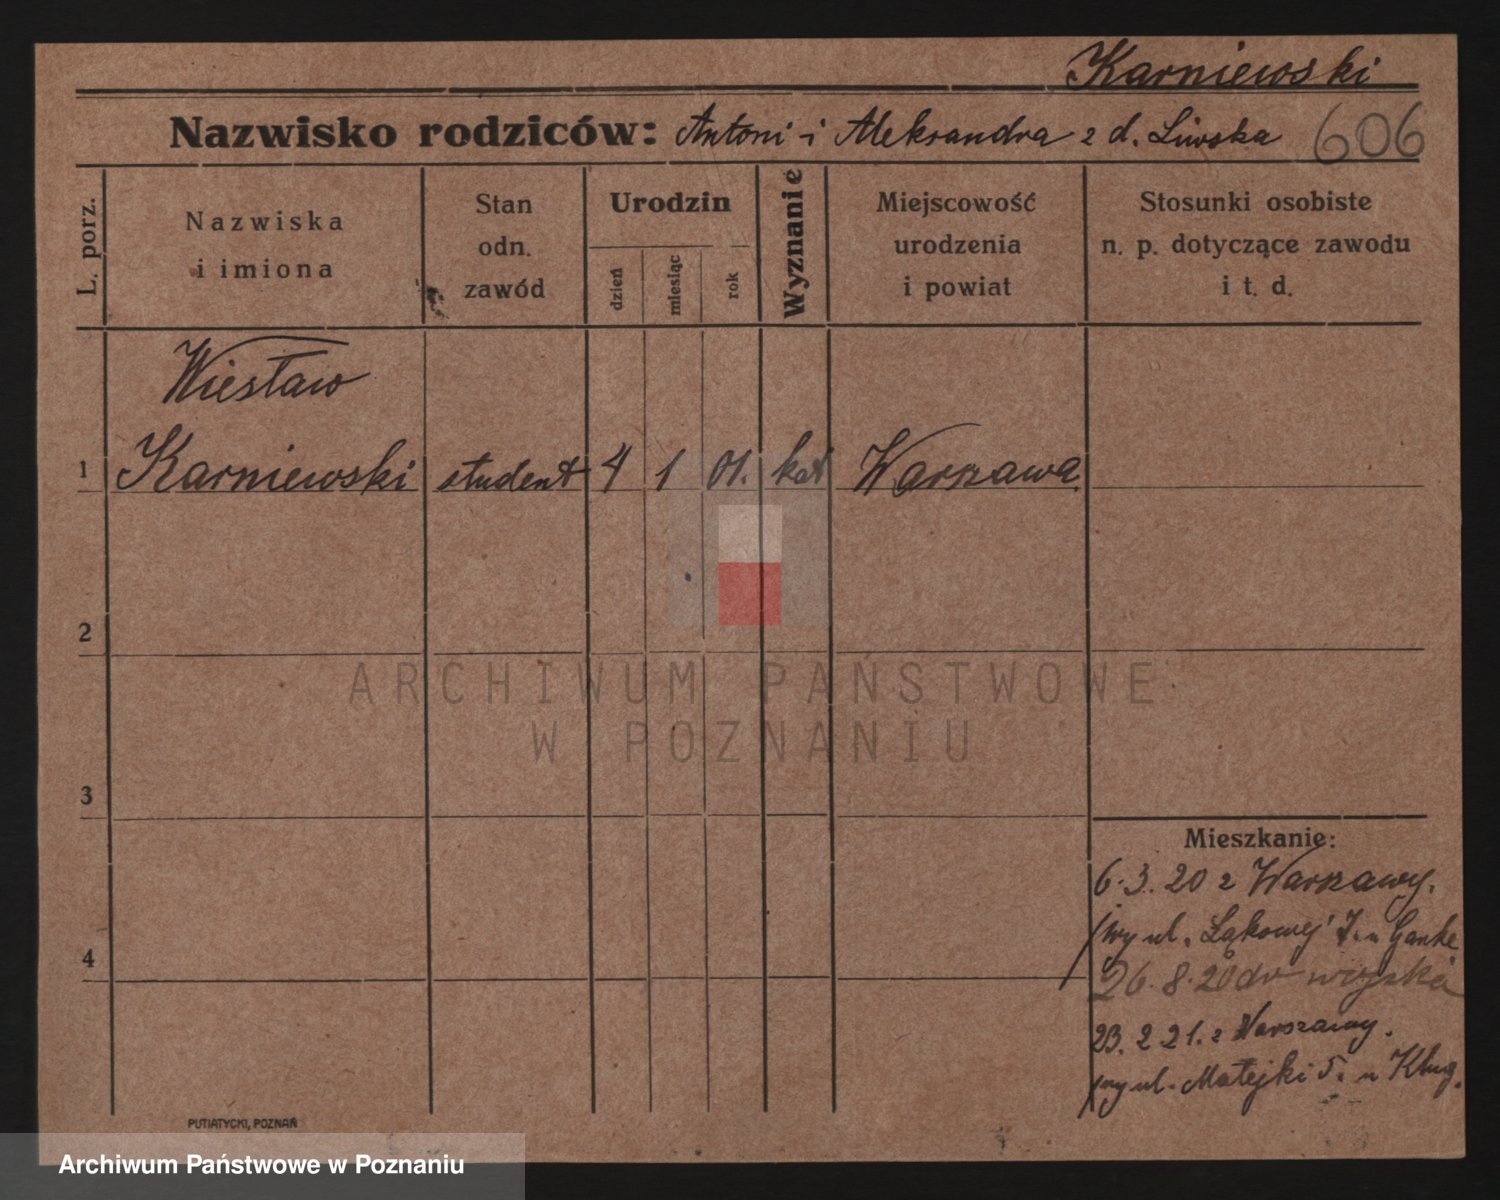 Karniewski
Nazwisko rodziców: Antoni i Aleksandra z d. Liwska 606
L. porz.
Nazwiska
i imiona
Stan
odn.
zawód
Urodzin
dzień
miesiąc
rok
Wyznanie
Miejscowość
urodzenia
i powiat
Stosunki osobiste
n. p. dotyczące zawodu
i t. d.
Wiesław
1 Karniewski student 4 1 01. kat Warszawa
2
3
4
Mieszkanie:
6.3.20 z Warszawy.
przy ul. Łąkowej
26.8.20 do wojska
23.2 21. z Warszawy.
przy ul. Matejki 5. u
PUTIATYCKI, POZNAŃ
ARCHIWUM PAŃSTWOWE
W POZNANIU
Archiwum Państwowe w Poznaniu